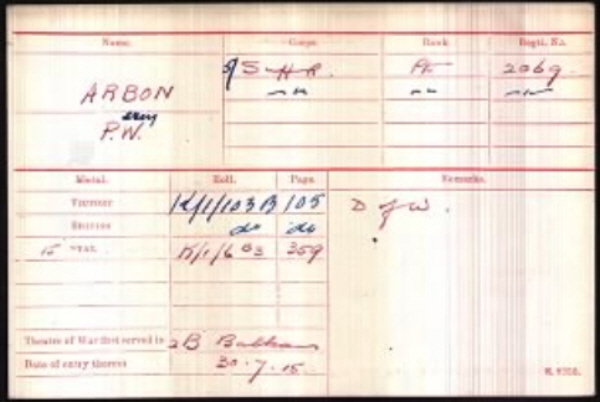 Name. Corps. Rank Regtl. No.
ARBON 5/Suff. R. Pte 2069.
P.W.
Medal. Roll. Page. Remarks.
VICTORY K/1/103 B 105 D of W.
BRITISH do do
15 STAR K/1/6 B3 359
Theatre of War first served in 2B Balkans
Date of entry therein 30.7.15